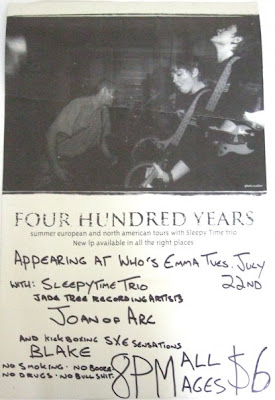 FOUR HUNDRED YEARS
summer european and north american tours with Sleepy Time trio
New lp available in all the right places
APPEARING AT WHO'S EMMA TUES. JULY 22ND
WITH: SLEEPYTIME TRIO
JADE TREE RECORDING ARTISTS
JOAN OF ARC
AND KICKBOXING SXE SENSATIONS
BLAKE
NO SMOKING · NO BOOZE
NO DRUGS · NO BULLSHIT.
8PM ALL AGES $6